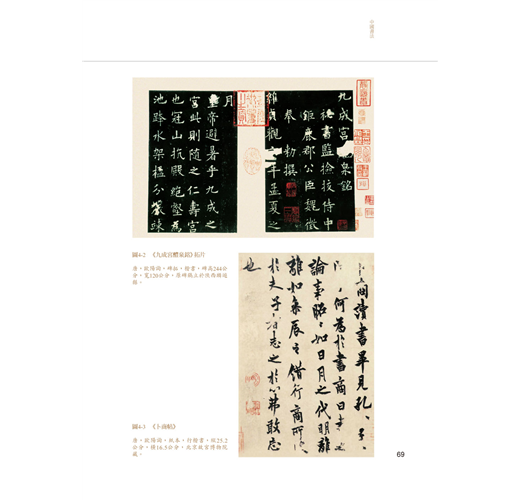 九成宮泉銘
秘書監檢校侍中
鉅鹿郡公臣魏徵
奉勑撰
維貞觀年孟夏之
月
皇帝避暑乎九成之
宮此則隨之仁壽宮
也冠山抗殿絕壑為
池跨水架楹分巖竦
圖4-2 《九成宮醴泉銘》拓片
唐，歐陽詢，碑拓，楷書，碑高244公
分，寬120公分，原碑現立於陝西麟遊
縣。
卜商讀書畢見孔子
何為於書商曰書之
論事昭〻如日月之代明離
離如參辰之錯行商所
於夫子者志之於心弗敢忘
也
圖4-3 《卜商帖》
唐，歐陽詢，紙本，行楷書，縱25.2
公分，橫16.5公分，北京故宮博物院
藏。
69